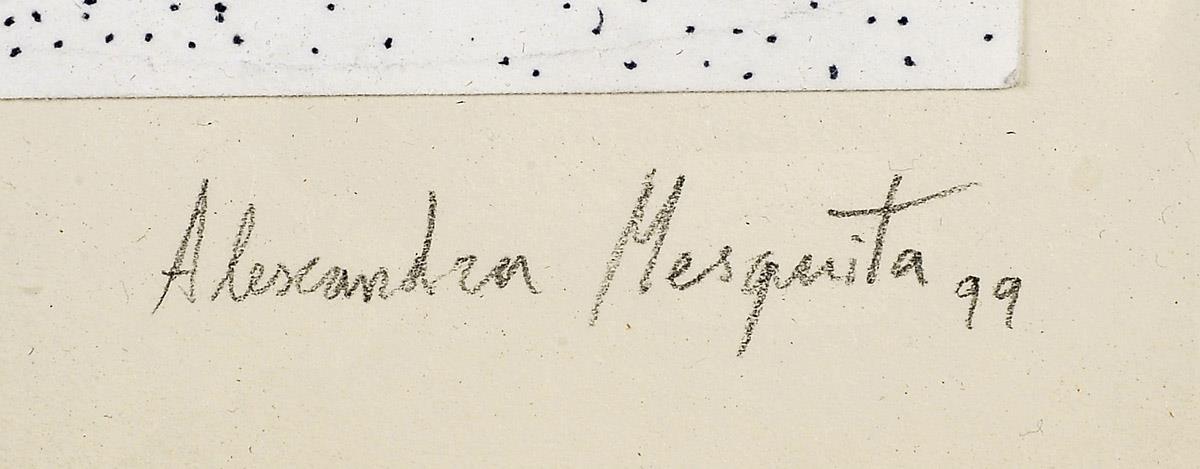 Alexandra Mesquita 99